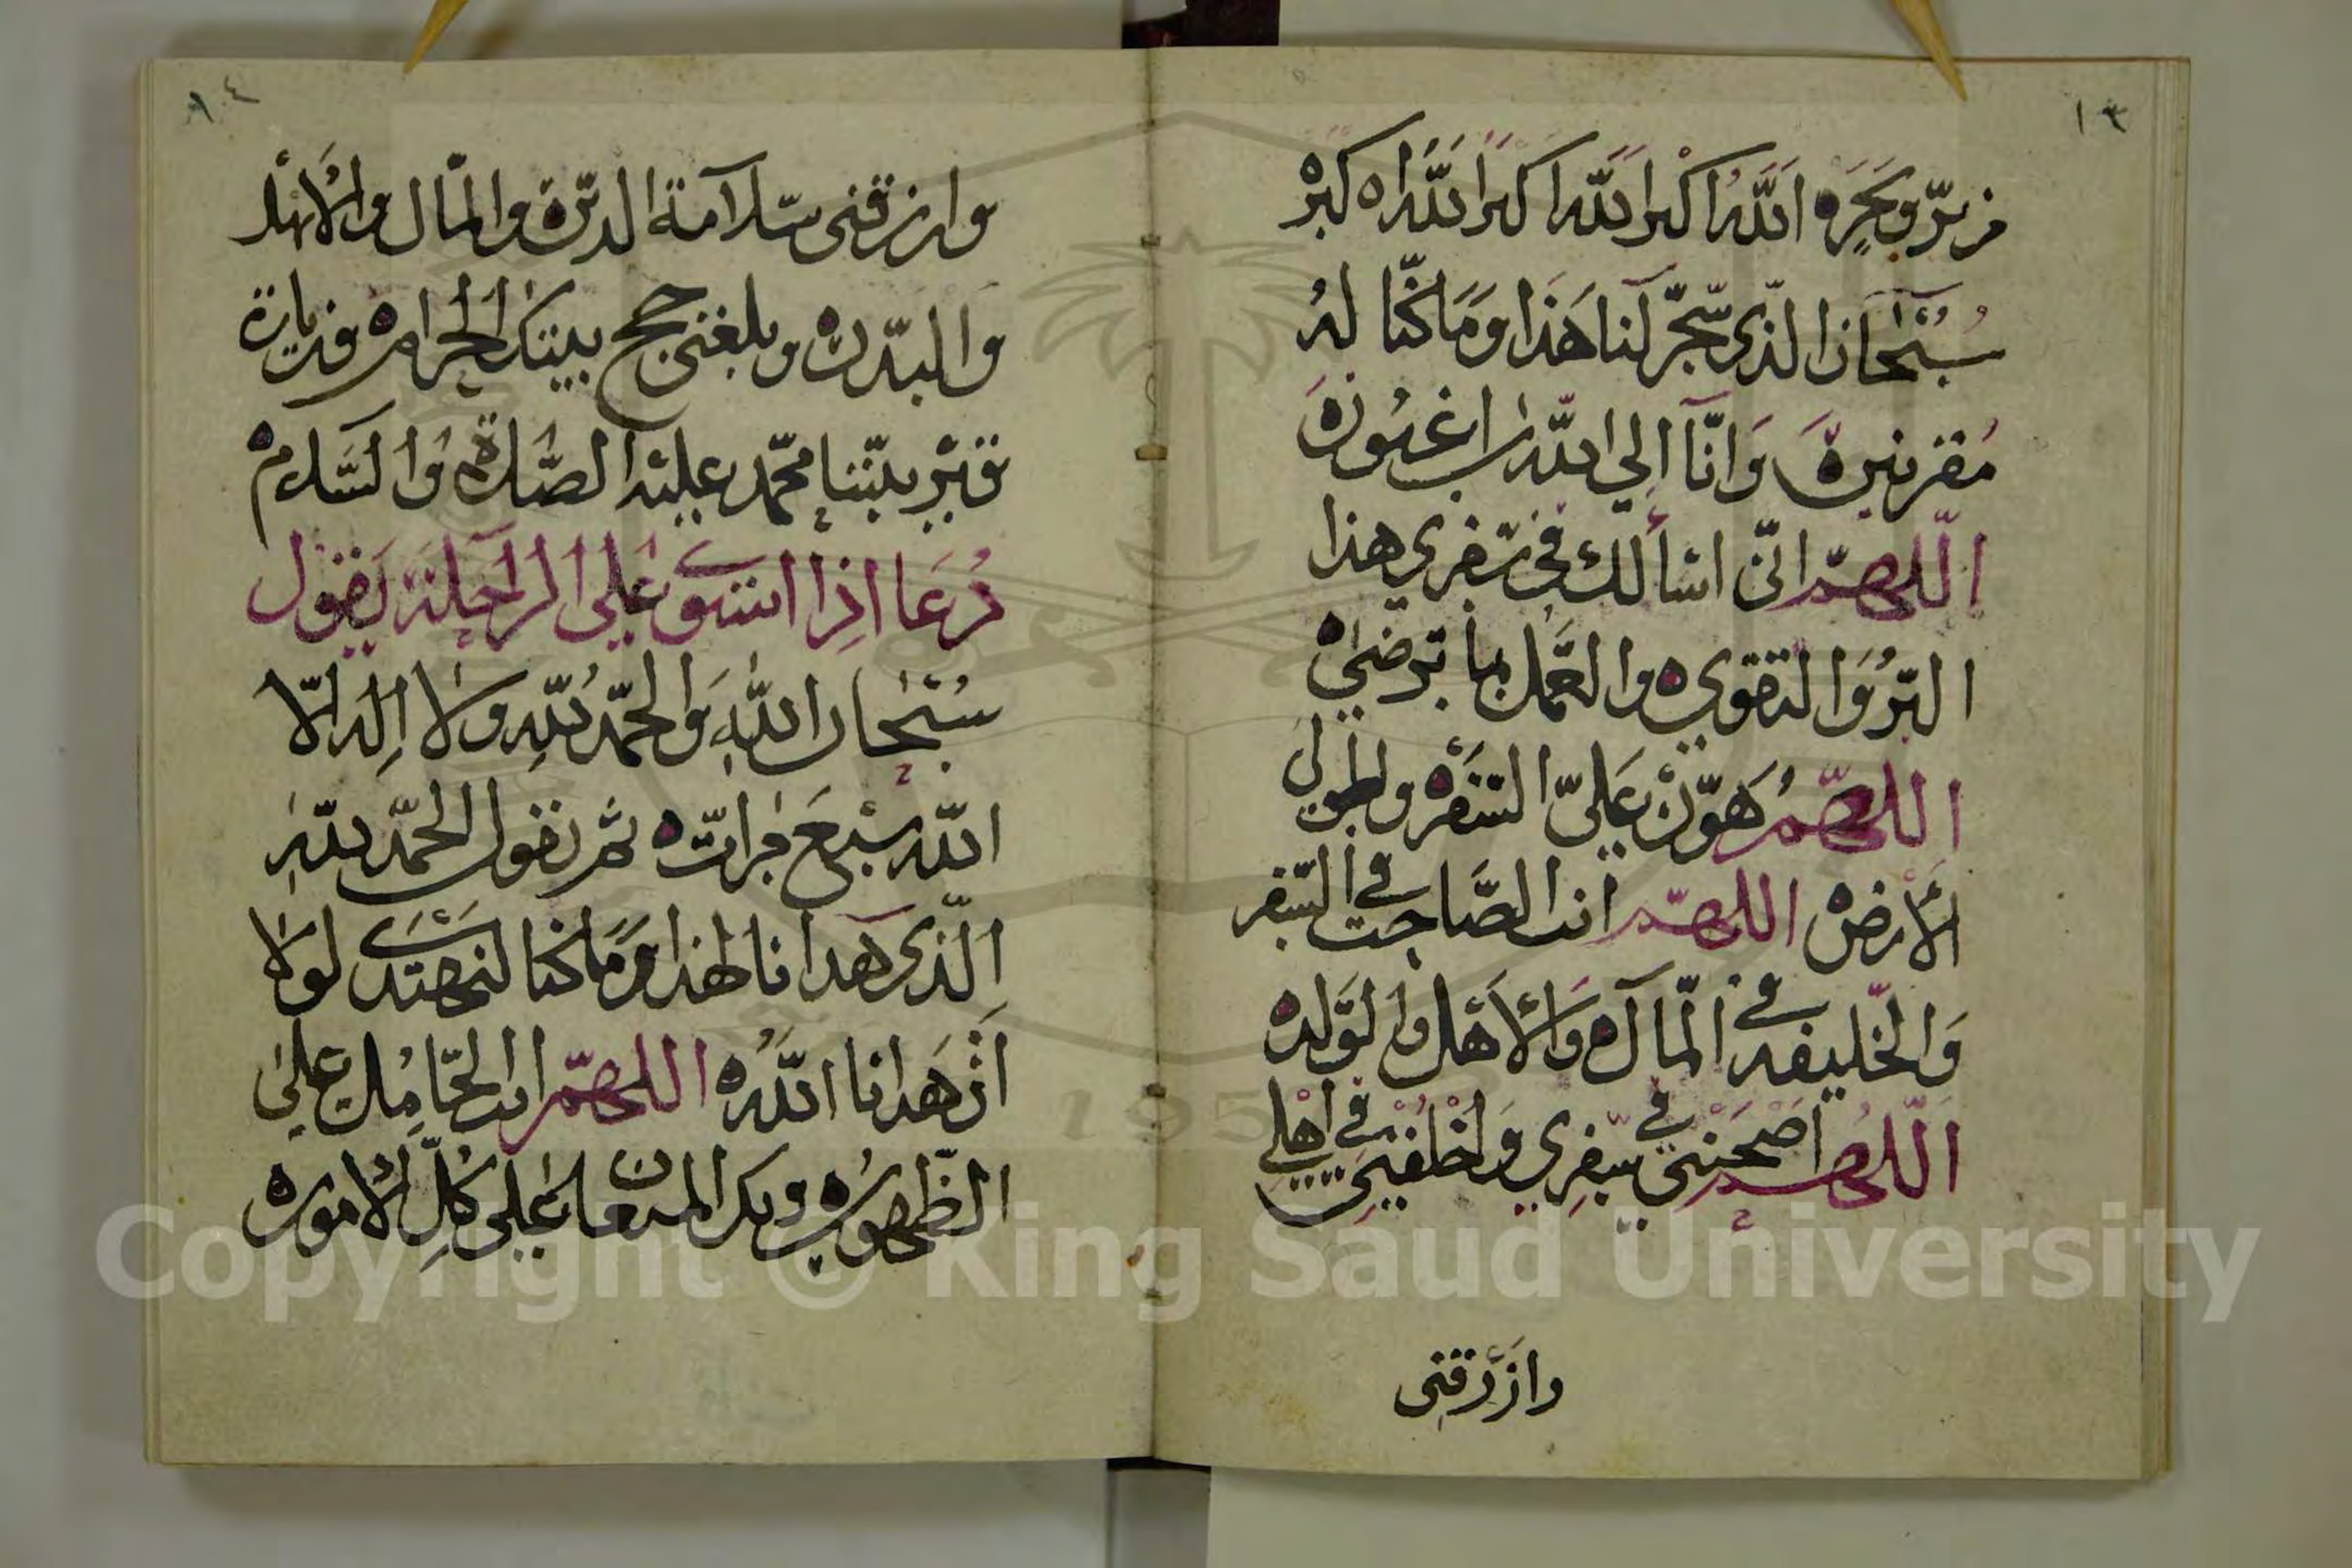 ١٣
من برّ وبحره الله اكبر الله اكبر الله اكبره
سبحان الذي سخر لنا هذا وما كنا له
مقرنين وانا الي الله راغبون
اللهم اني اسالك في سفري هذا
البر والتقوي والعمل بما ترضي
اللهم هون علي السفر واطولي
الارض اللهم انت الصاحب في السفر
والخليفه في المال والاهل والولد
اللهم اصحبني في سفري واخلفني في اهلي
وارزقني
١٤
وارزقني سلامة الدين والمال والاهل
والبدن وبلغني حج بيتك الحرام وزيارة
قبر نبينا محمد عليه الصلاة والسلام
دعا اذا استوى على الراحلة يقول
سبحان الله والحمد لله ولا اله الا
الله سبع مرات ثم يقول الحمد لله
الذي هدانا لهذا وما كنا لنهتدى لولا
ان هدانا الله اللهم انت الحامل على
الظهور وبك المستعان على كل الامور
Copyright © King Saud University
195